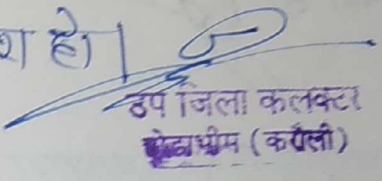 श हो।
उप जिला कलक्टर
टोडाभीम (करौली)